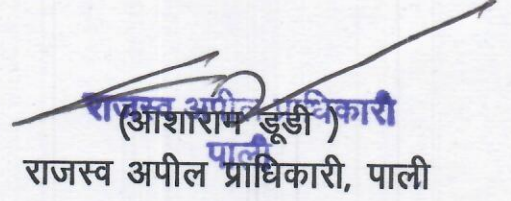 राजस्व अपील प्राधिकारी
(आशाराम डूडी )
पाली
राजस्व अपील प्राधिकारी, पाली